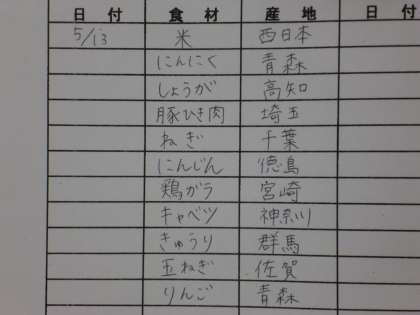 日付 食材 産地 日付
5/13 米 西日本
にんにく 青森
しょうが 高知
豚ひき肉 埼玉
ねぎ 千葉
にんじん 徳島
鶏ガラ 宮崎
キャベツ 神奈川
きゅうり 群馬
玉ねぎ 佐賀
りんご 青森